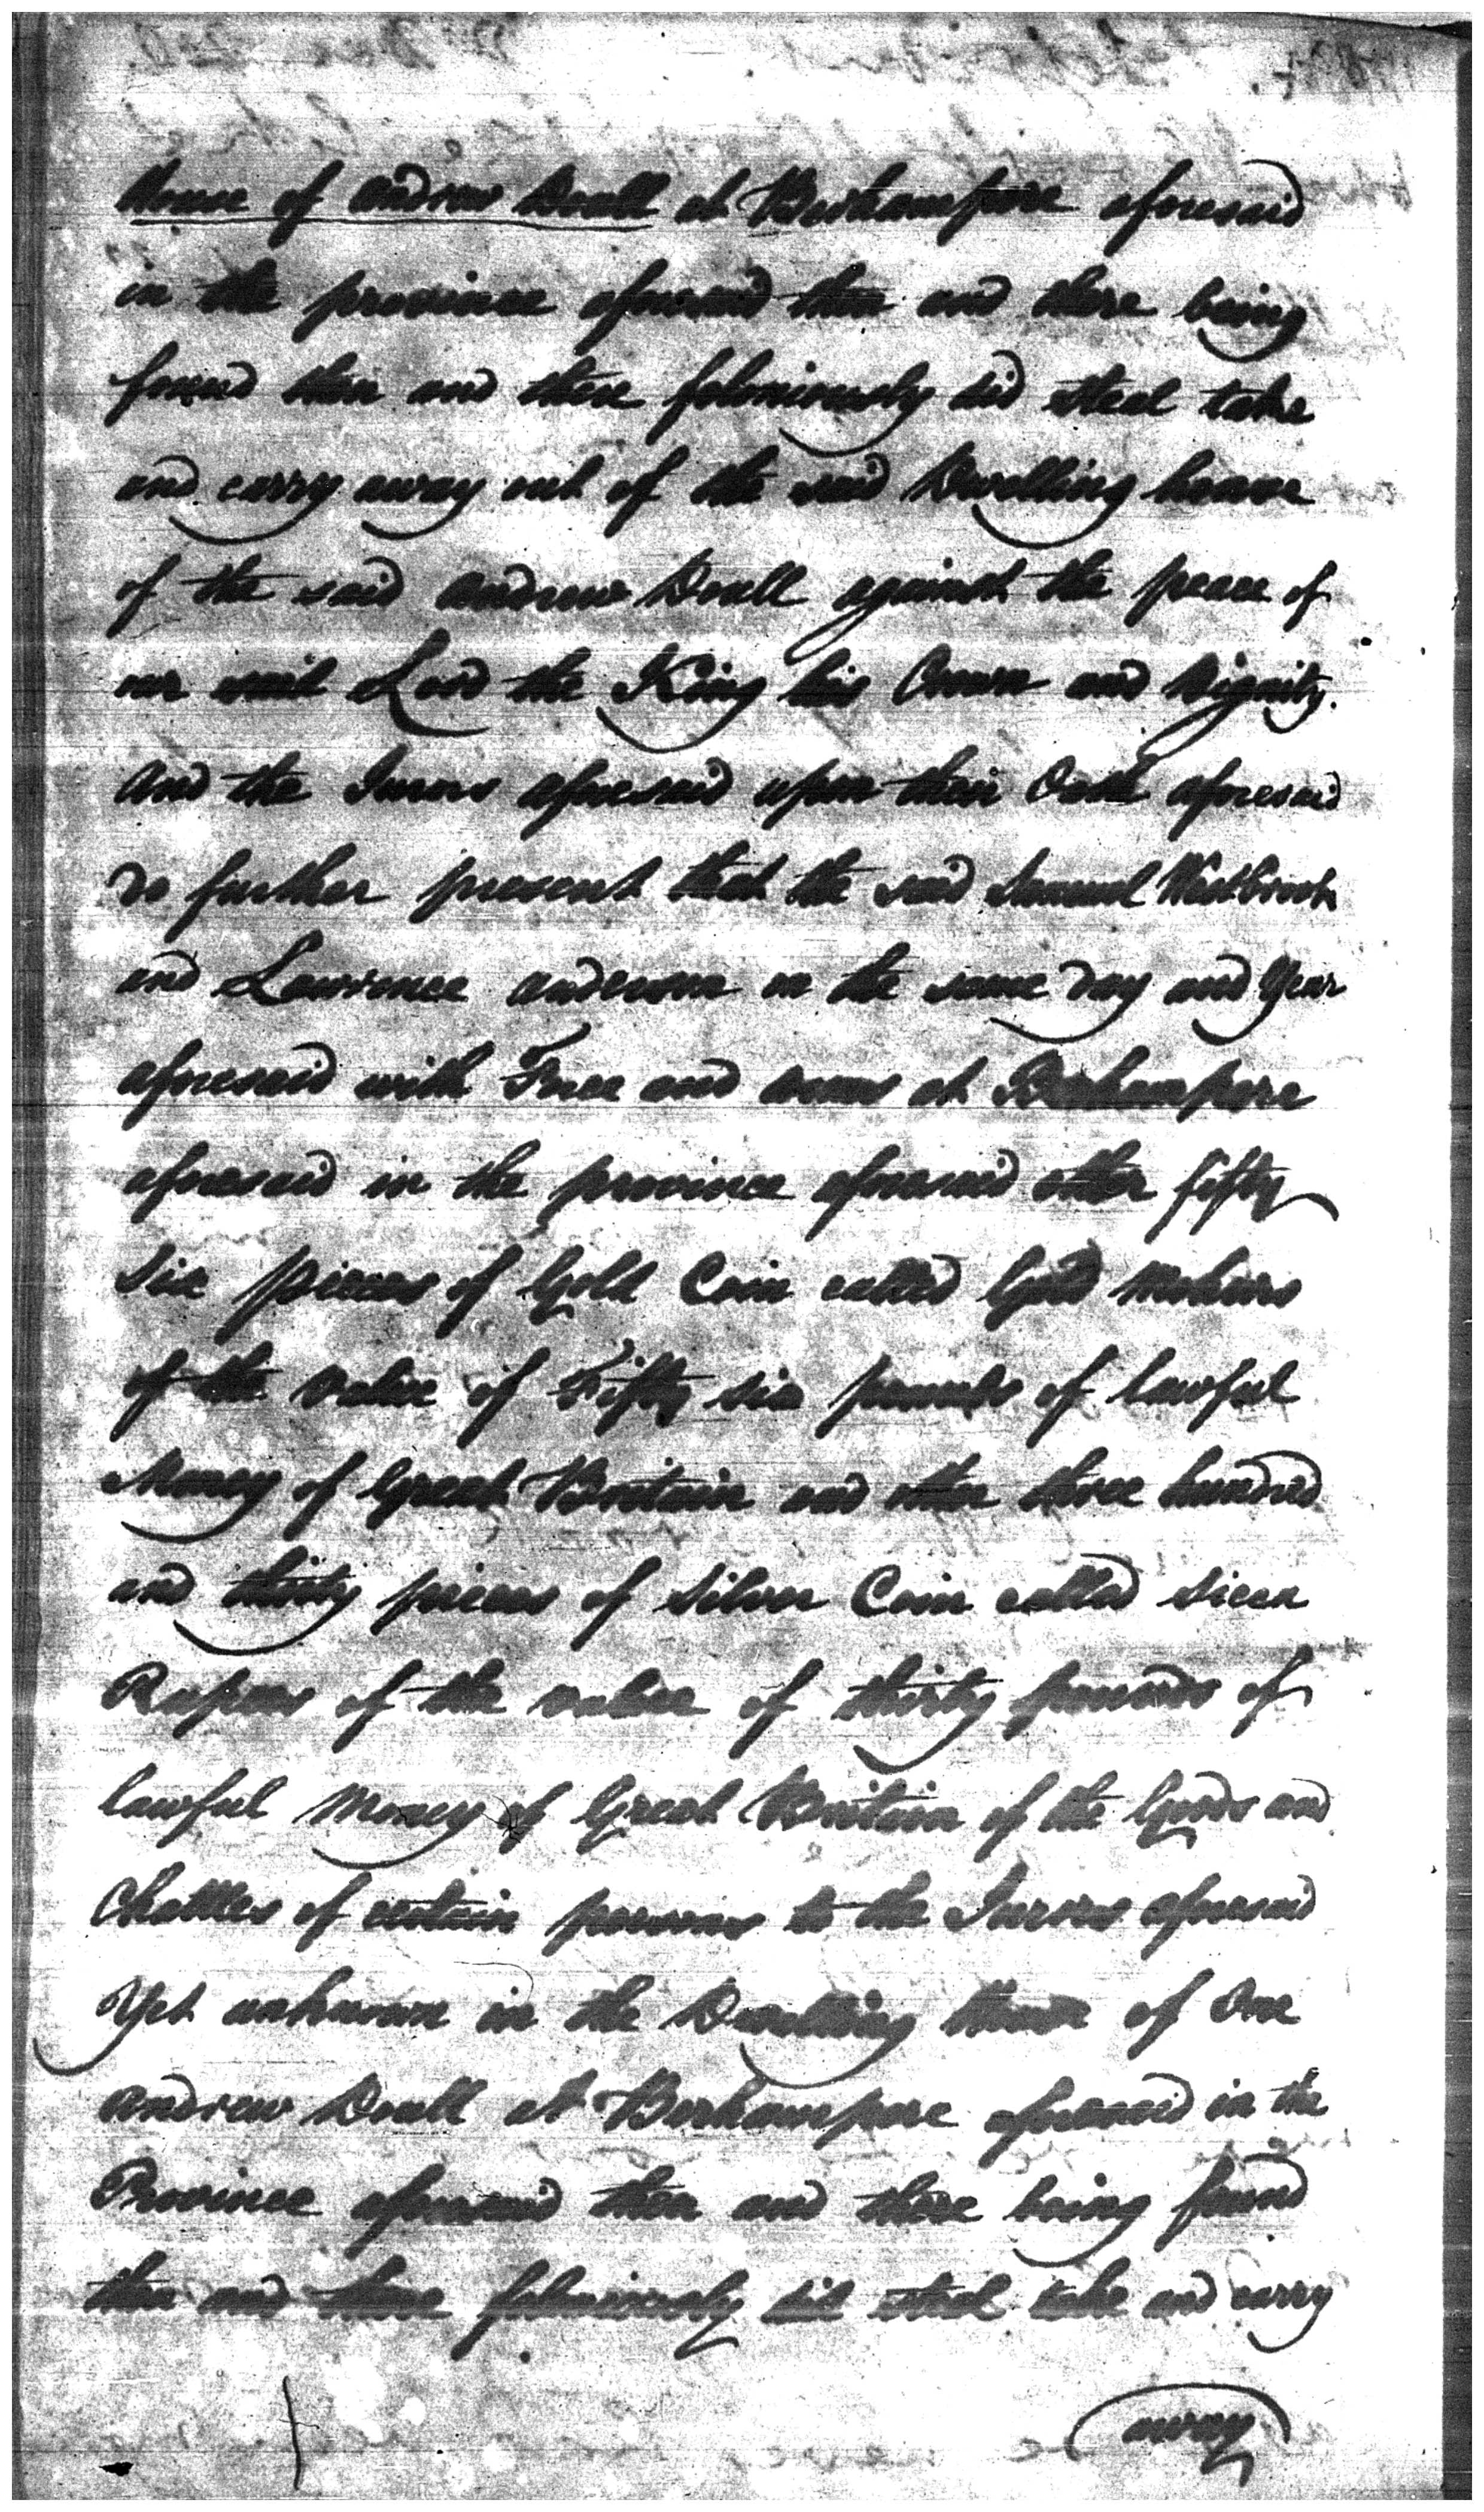 House of Andrew Doull at Berhampore aforesaid
in the province aforesaid then and there being
found then and there feloniously did steal take
and carry away out of the said Dwelling house
of the said Andrew Doull against the peace of
our said Lord the King his Crown and Dignity.
And the Jurors aforesaid upon their Oath aforesaid
do further present that the said Samuel Westbrook
and Lawrence Anderson on the same day and Year
aforesaid with Force and arms at Berhampore
aforesaid in the province aforesaid other fifty
six pieces of Gold Coin called Gold Mohurs
of the value of Fifty six pounds of lawful
Money of Great Britain and other three hundred
and thirty pieces of Silver Coin called Sicca
Rupees of the value of thirty pounds of
lawful Money of Great Britain of the Goods and
Chattles of certain persons to the Jurors aforesaid
Yet unknown in the Dwelling House of One
Andrew Doull at Berhampore aforesaid in the
Province aforesaid then and there being found
then and there feloniously did steal take and carry
away